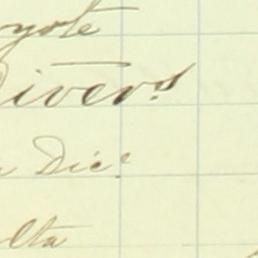 yote
ivers
a Dice
lta